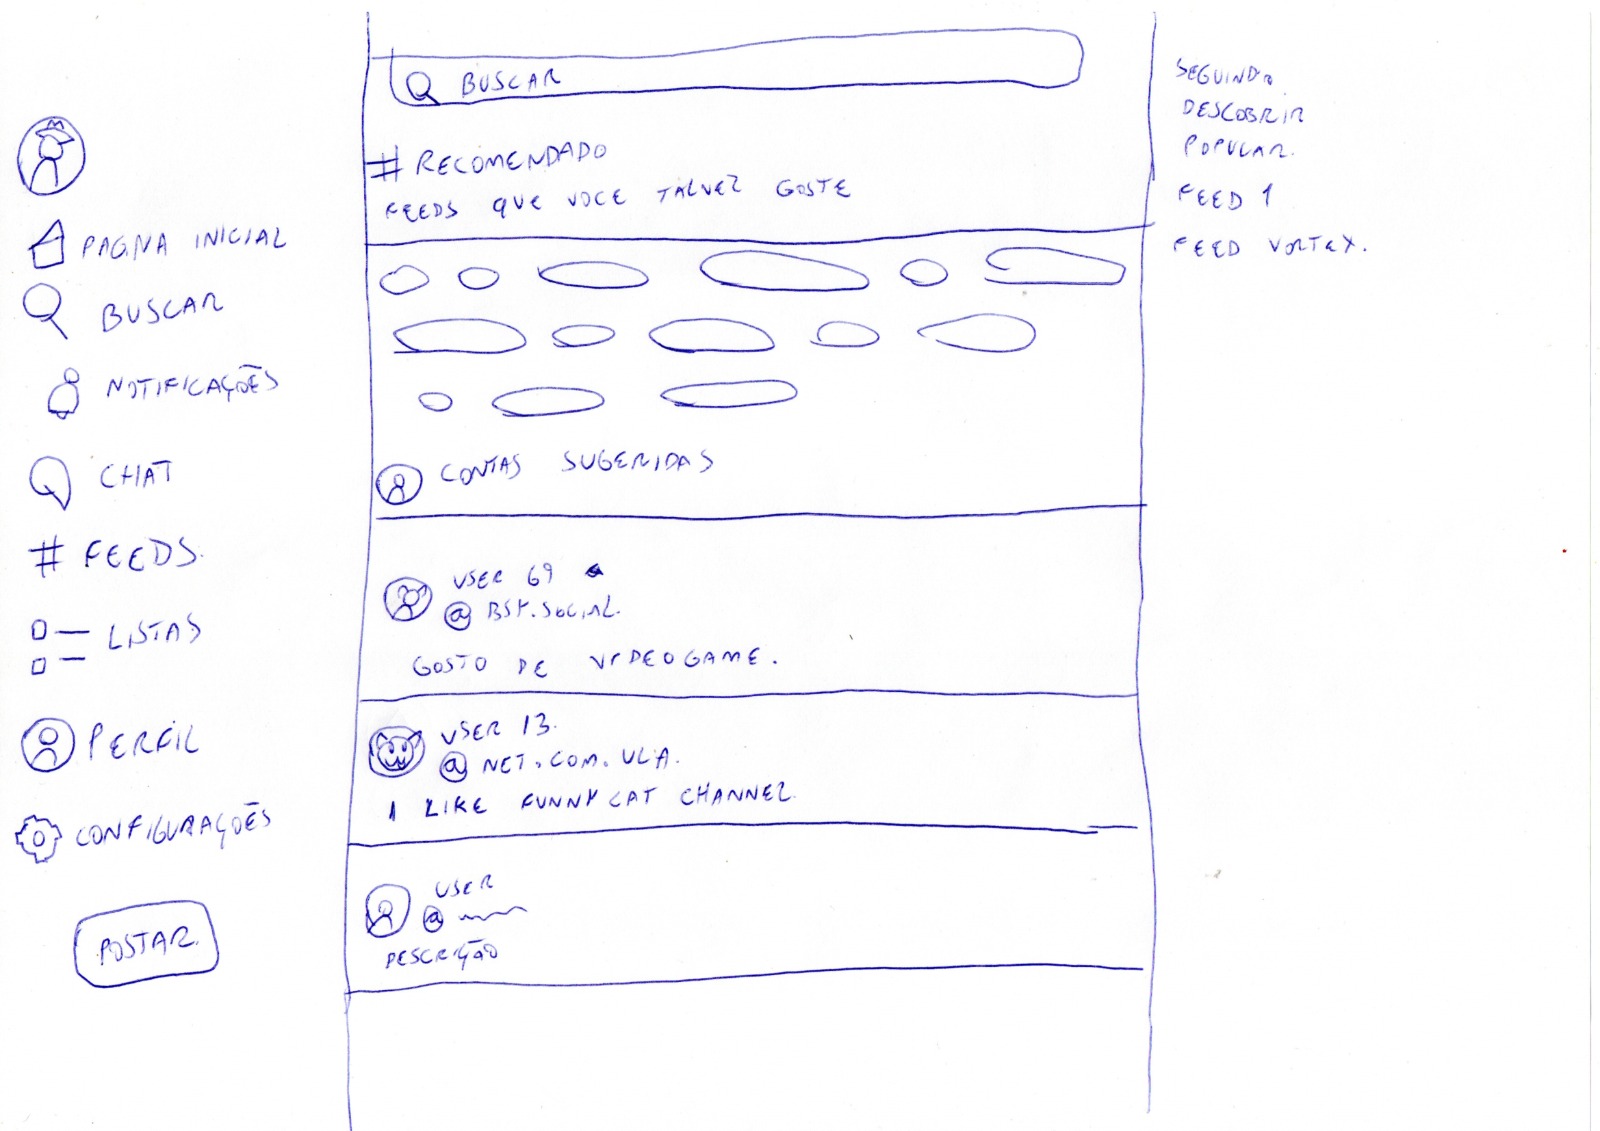 PAGINA INICIAL
BUSCAR
NOTIFICAÇÕES
CHAT
# FEEDS.
LISTAS
PERFIL
CONFIGURAÇÕES
POSTAR.
BUSCAR
# RECOMENDADO
FEEDS QUE VOCE TALVEZ GOSTE
CONTAS SUGERIDAS
USER 69
@ BSK.SOCIAL.
GOSTO DE VIDEOGAME.
USER 13.
@ NET.COM.ULA.
I LIKE FUNNY CAT CHANNEL.
USER
@
DESCRIÇÃO
SEGUINDO
DESCOBRIR
POPULAR.
FEED 1
FEED VORTEX.